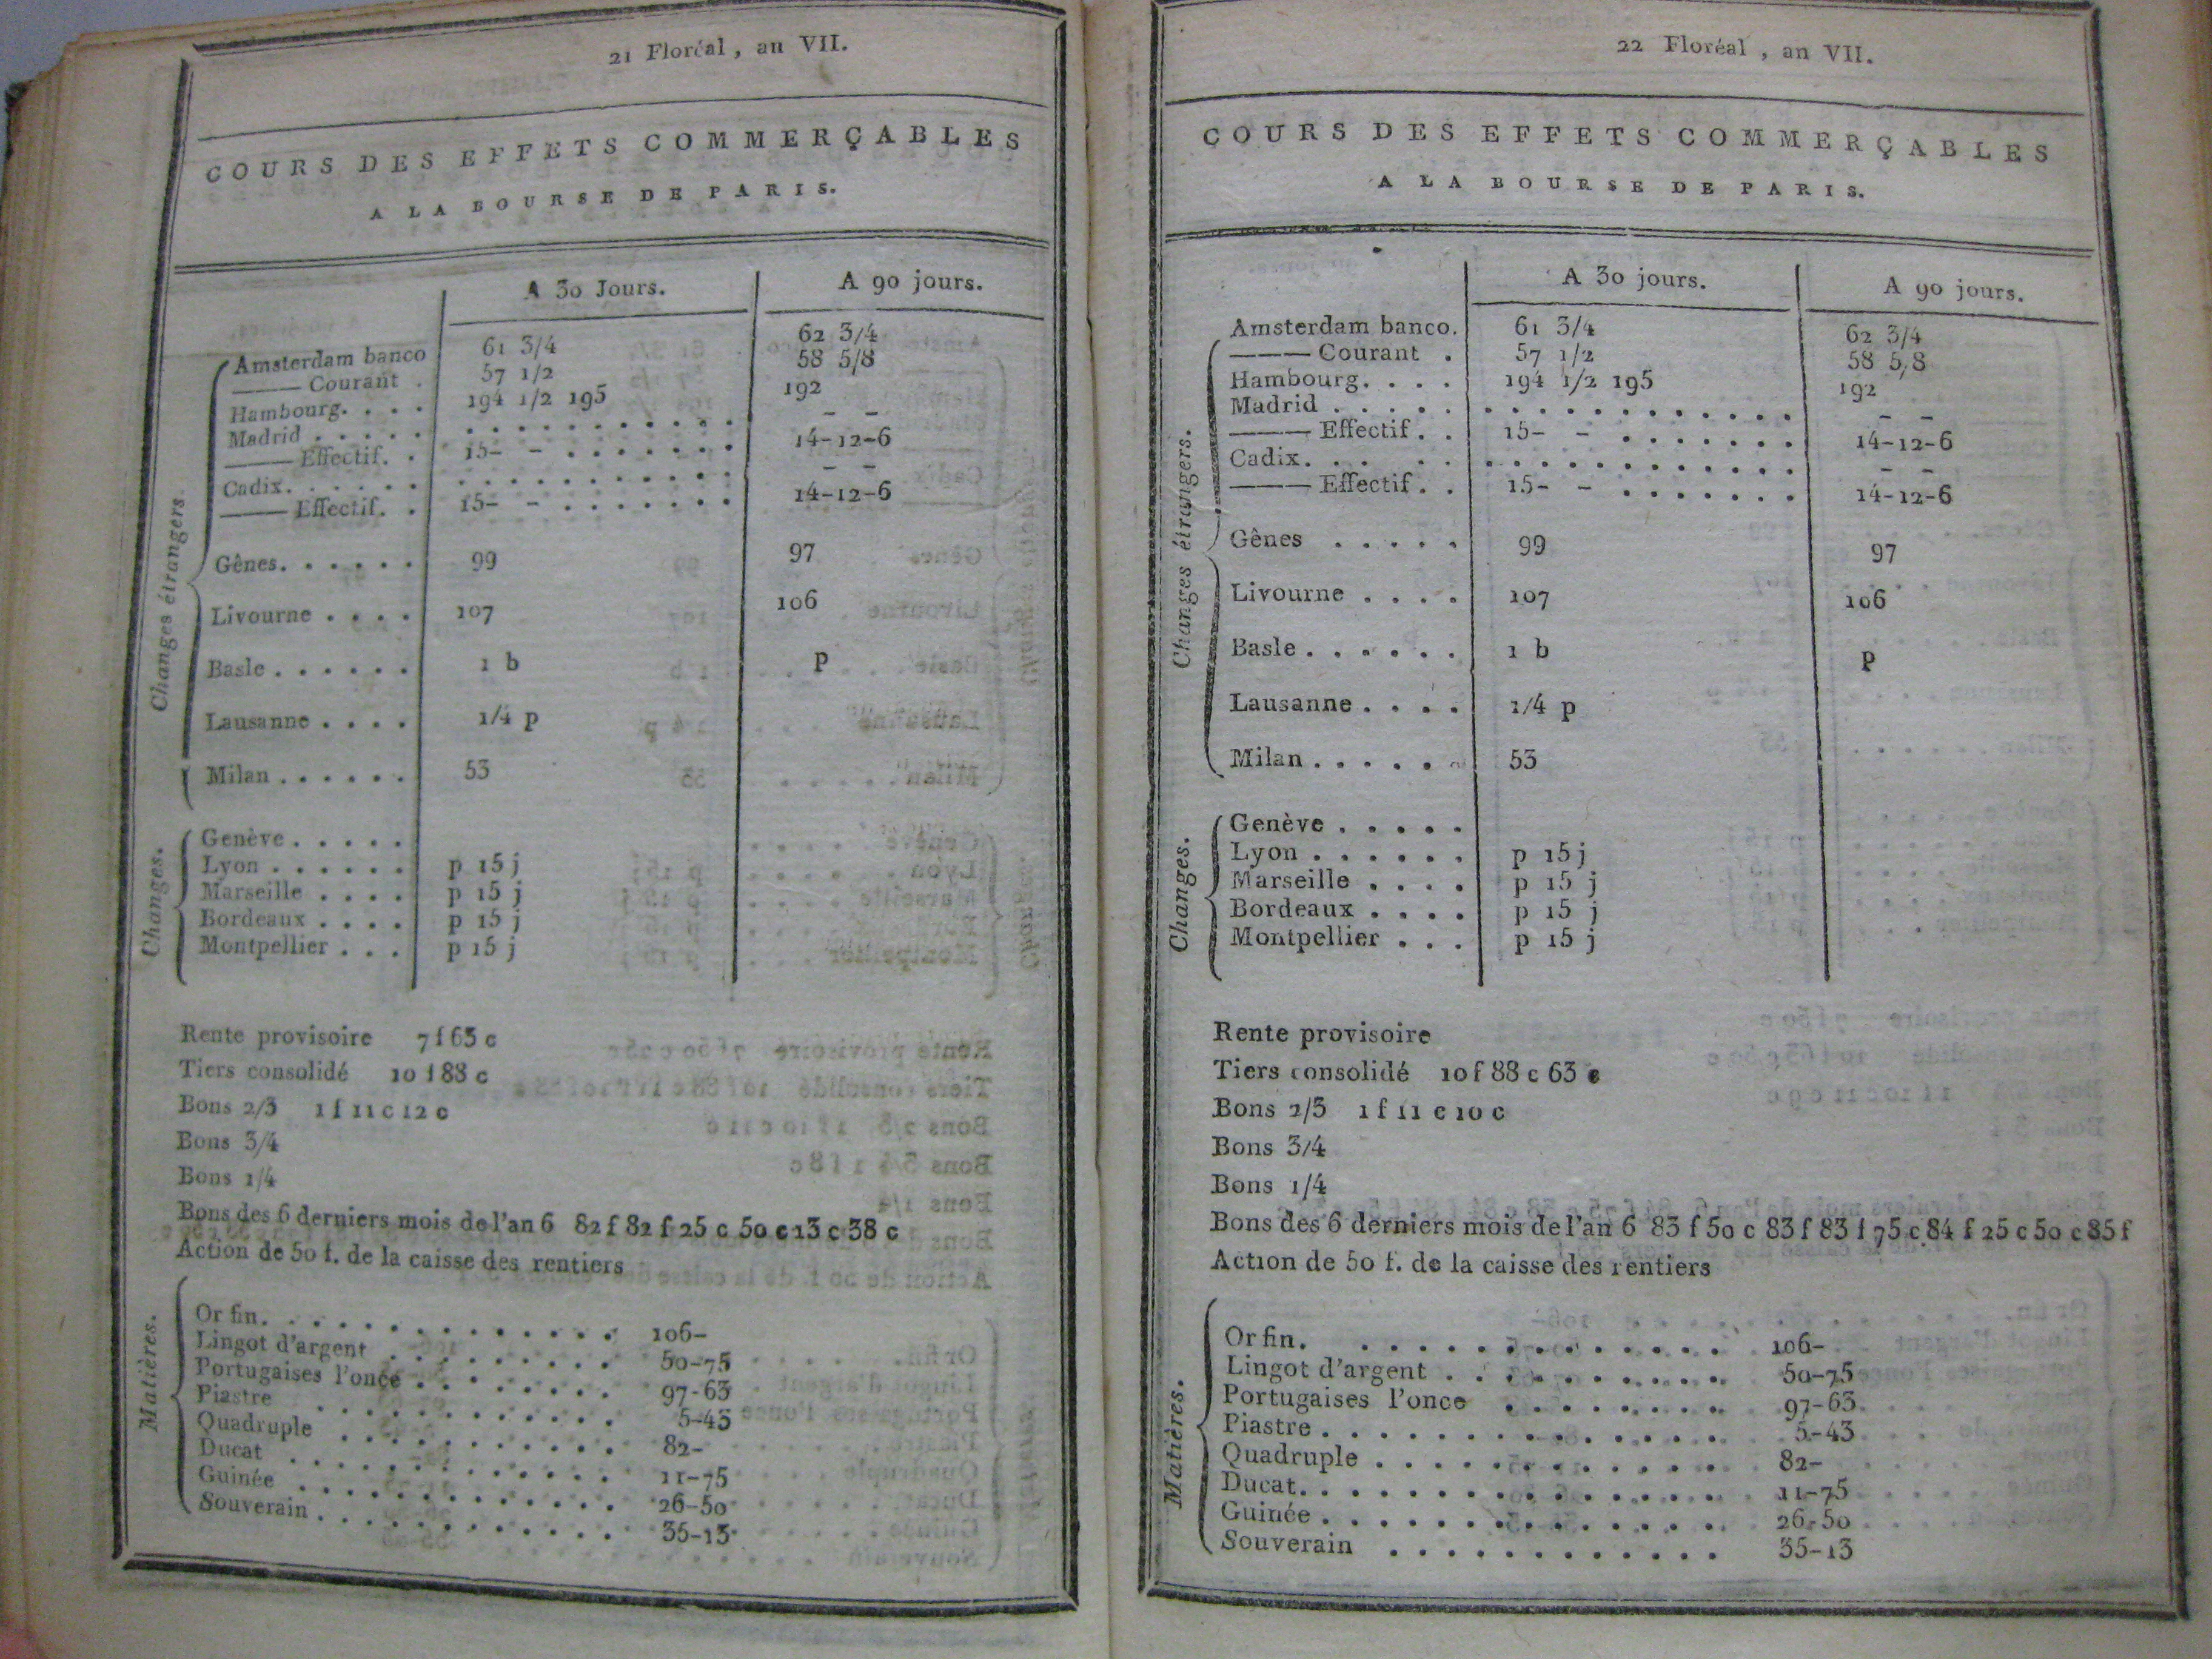 21 Floréal, an VII.
COURS DES EFFETS COMMERÇABLES
A LA BOURSE DE PARIS.
A 30 Jours. A 90 jours.
Changes étrangers
Amsterdam banco 61 3/4 62 3/4
——— Courant . 57 1/2 58 5/8
Hambourg. . . . 194 1/2 195 192
Madrid . . . . . . . . . . . . . . . . – –
——— Effectif. . 15– – . . . . . . . 14–12–6
Cadix. . . . . . . . . . . . . . . . . – –
——— Effectif. . 15– – . . . . . . . 14–12–6
Gênes. . . . . . 99 97
Livourne . . . . 107 106
Basle . . . . . . 1 b p
Lausanne . . . . 1/4 p
Milan . . . . . . 53
Changes.
Genève . . . . .
Lyon . . . . . . p 15 j
Marseille . . . . p 15 j
Bordeaux . . . . p 15 j
Montpellier . . . p 15 j
Rente provisoire 7 f 63 c
Tiers consolidé 10 f 88 c
Bons 2/3 1 f 11 c 12 c
Bons 3/4
Bons 1/4
Bons des 6 derniers mois de l'an 6 82 f 82 f 25 c 50 c 13 c 38 c
Action de 50 f. de la caisse des rentiers
Matières.
Or fin. . . . . . . . . . . . . . 106–
Lingot d'argent . . . . . . . . . 50–75
Portugaises l'once . . . . . . . . 97-63
Piastre . . . . . . . . . . . . 5-43
Quadruple . . . . . . . . . . . 82–
Ducat . . . . . . . . . . . . . 11–75
Guinée . . . . . . . . . . . . 26–50
Souverain . . . . . . . . . . . . 35–13
22 Floréal, an VII.
COURS DES EFFETS COMMERÇABLES
A LA BOURSE DE PARIS.
A 30 jours. A 90 jours.
Changes étrangers.
Amsterdam banco. 61 3/4 62 3/4
——— Courant . 57 1/2 58 5/8
Hambourg. . . . 194 1/2 195 192
Madrid . . . . . . . . . . . . . . . . – –
——— Effectif. . 15– – . . . . . . . 14–12–6
Cadix. . . . . . . . . . . . . . . . . – –
——— Effectif. . 15– – . . . . . . . 14–12–6
Gênes . . . . . 99 97
Livourne . . . . 107 106
Basle . . . . . . 1 b p
Lausanne . . . . 1/4 p
Milan . . . . . . 53
Changes.
Genève . . . . .
Lyon . . . . . . p 15 j
Marseille . . . . p 15 j
Bordeaux . . . . p 15 j
Montpellier . . . p 15 j
Rente provisoire
Tiers consolidé 10 f 88 c 63 c
Bons 2/3 1 f 11 c 10 c
Bons 3/4
Bons 1/4
Bons des 6 derniers mois de l'an 6 83 f 50 c 83 f 83 f 75 c 84 f 25 c 50 c 85 f
Action de 50 f. de la caisse des rentiers
Matières.
Or fin. . . . . . . . . . . . . . 106–
Lingot d'argent . . . . . . . . . . 50–75
Portugaises l'once . . . . . . . . 97–63
Piastre . . . . . . . . . . . . . . 5–43
Quadruple . . . . . . . . . . . . . 82–
Ducat. . . . . . . . . . . . . . . 11–75
Guinée . . . . . . . . . . . . . . 26-50
Souverain . . . . . . . . . . . . 35–13